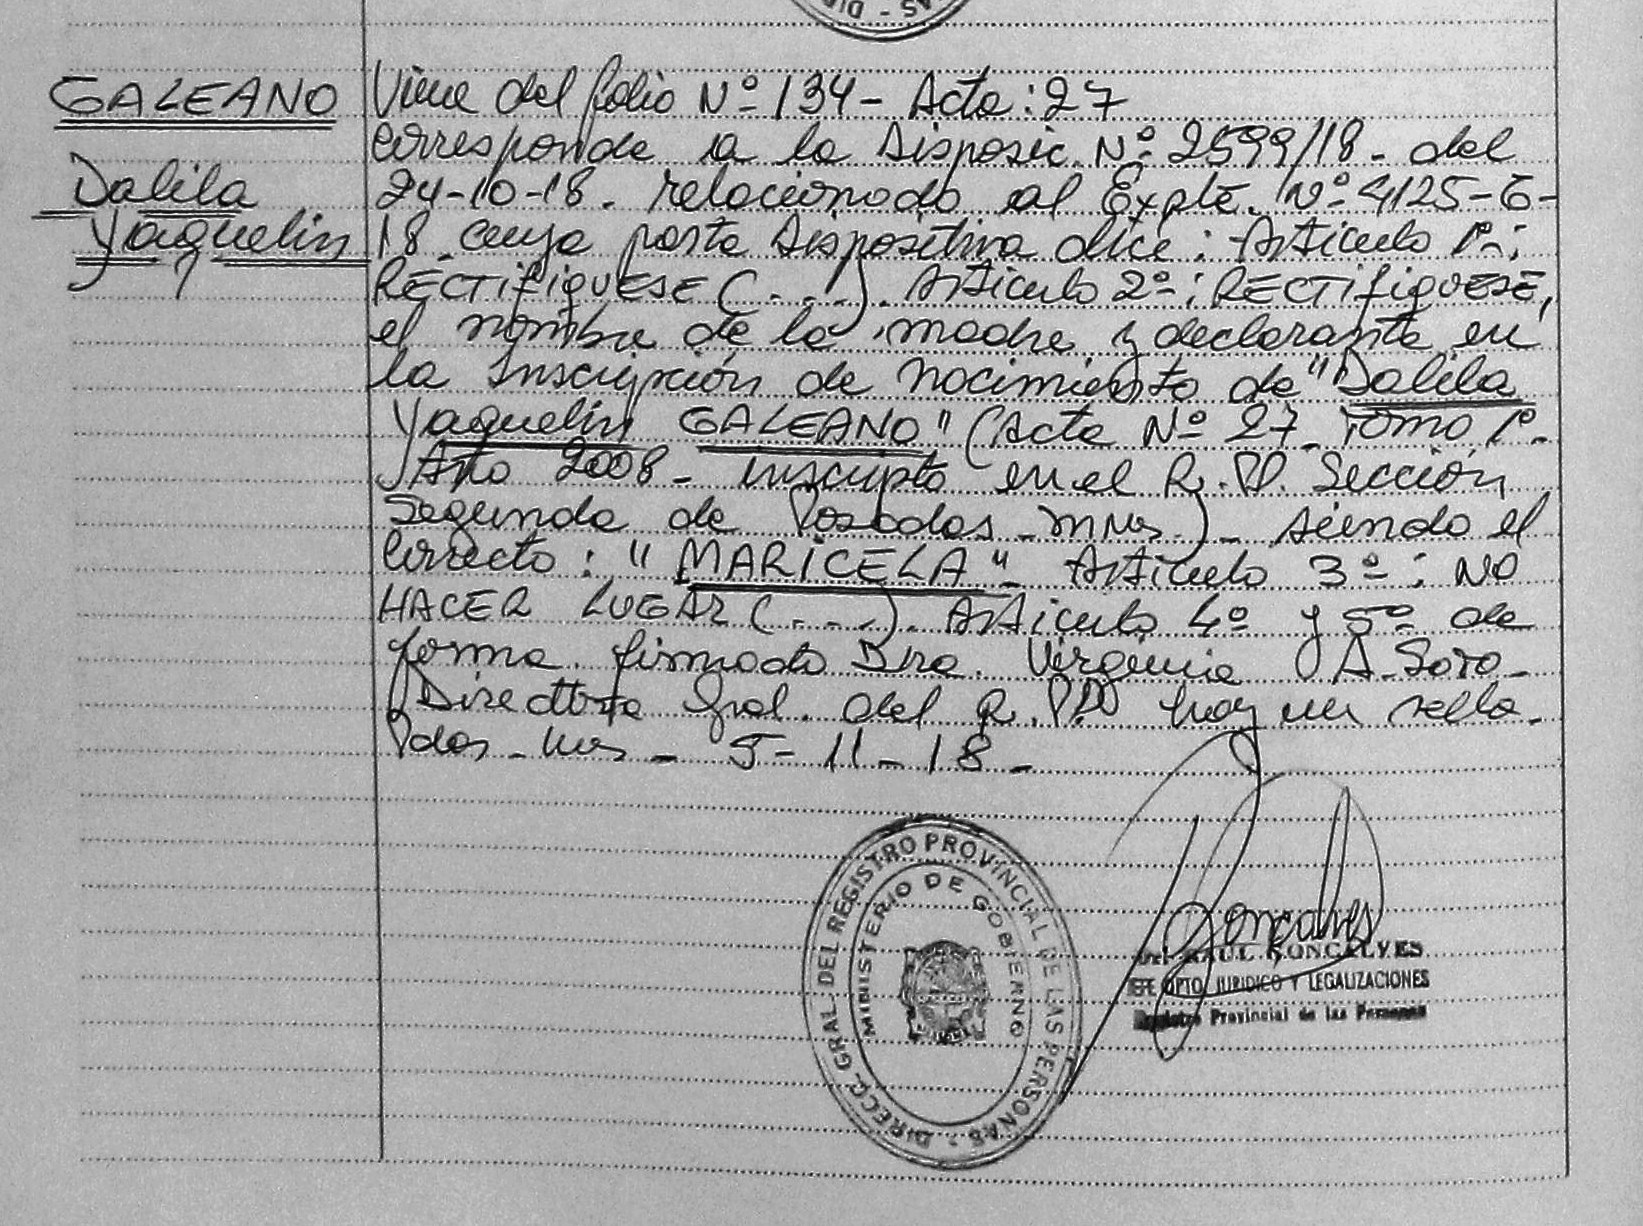 AS - DIR
GALEANO
Dalila
Yaquelin
Viene del folio Nº 134 - Acta: 27
Corresponde a la Disposic. Nº 2599/18 - del
24-10-18. relacionado al Expte. Nº 4125-G-
18 cuya parte dispositiva dice: Articulo 1º-:
RECTIFIQUESE (...). Articulo 2º-: RECTIFIQUESE,
el nombre de la madre y declarante en
la Inscripción de nacimiento de "Dalila
Yaquelin GALEANO" (Acta Nº 27 - Tomo 1º -
Año 2008 - inscripta en el R.P.P. Sección
Segunda de Posadas - Mnes) - siendo el
Correcto: "MARICELA" - Articulo 3º-: NO
HACER LUGAR (...). Articulo 4º y 5º de
forma. firmado Dra. Virginia A. Soto -
Directora Gral. del R.P.P hay un sello.
Pdas - Mes - 5 - 11 - 18 -
DIRECC. GRAL. DEL REGISTRO PROVINCIAL DE LAS PERSONAS -
MINISTERIO DE GOBIERNO
Goncalves
RAUL GONCALVES
JEFE DPTO JURIDICO Y LEGALIZACIONES
Registro Provincial de las Personas